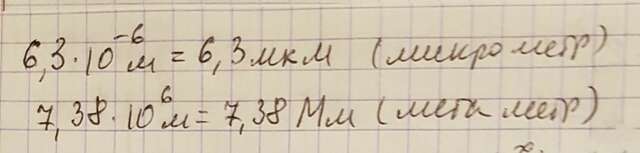 6,3·10⁻⁶м = 6,3мкм (микрометр)
7,38·10⁶м = 7,38 Мм (мегаметр)